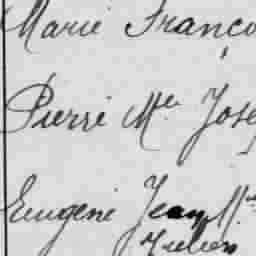 Marie Franço
Pierre Mie Jose
Eugene Jean M
Julien